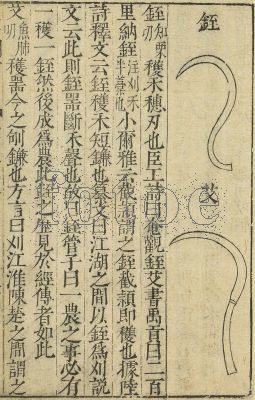 銍
艾
銍知栗切穫禾穗刃也臣工詩曰奄觀銍艾書禹貢曰二百
里納銍注刈禾半藁也小爾雅云截穎謂之銍截穎即穫也據陸
詩釋文云銍穫禾短鎌也纂文曰江湖之間以銍爲刈說
文云此則銍器斷禾聲也故曰銍管子曰一農之事必有
一穫一銍然後成爲農此銍之歷見於經傳者如此
艾魚肺切穫器今之鎌也方言曰刈江淮陳楚之間謂之